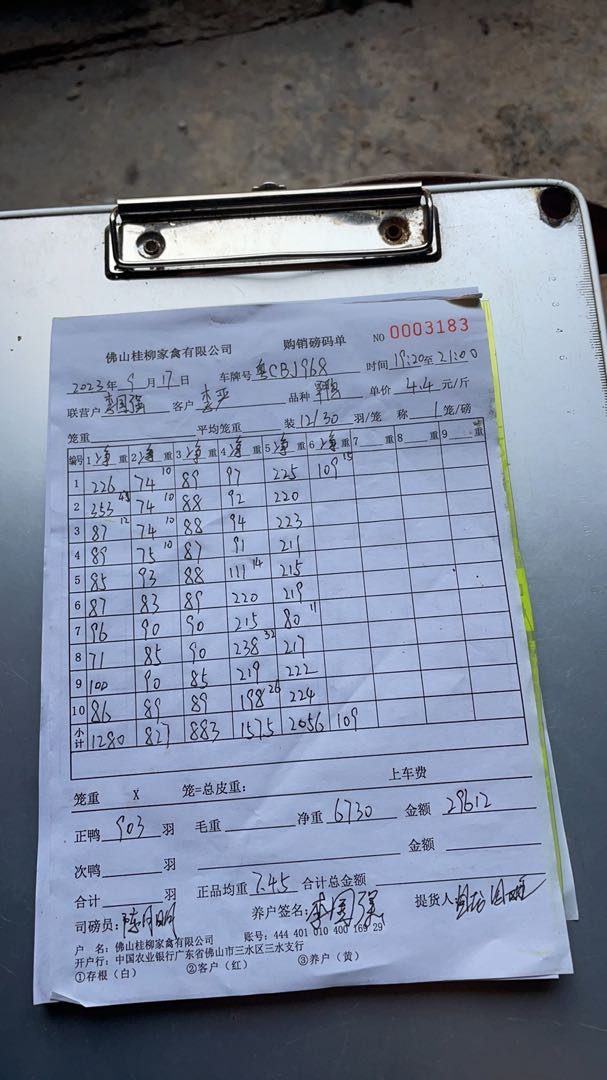 佛山桂柳家禽有限公司 购销磅码单 NO 0003183
2023年 9月17日 车牌号 粤CBJ968 时间 19:20至21:00
联营户 李国强 客户 品种 单价 4.4 元/斤
笼重 平均笼重 装 12/30 羽/笼 称 1 笼/磅
编号 1 净重 2 净重 3 净重 4 净重 5 净重 6 净重 7 重 8 重 9 重
1 226 74 10 89 97 225 109 15
2 353 45 74 10 88 92 220
3 87 12 74 10 88 94 223
4 89 75 10 87 91 211
5 85 93 88 111 14 215
6 87 83 89 220 219
7 96 90 90 215 80 11
8 71 85 90 238 32 217
9 100 90 85 219 222
10 86 89 89 198 26 224
小计 1280 827 883 1575 2056 109
笼重 X 笼=总皮重: 上车费
正鸭 903 羽 毛重 净重 6730 金额 29612
次鸭 羽 金额
合计 羽 正品均重 7.45 合计总金额
司磅员: 陈月明 养户签名: 李国强 提货人
户 名: 佛山桂柳家禽有限公司 账号: 444 401 010 400 169 29
开户行: 中国农业银行广东省佛山市三水区三水支行
①存根（白） ②客户（红） ③养户（黄）